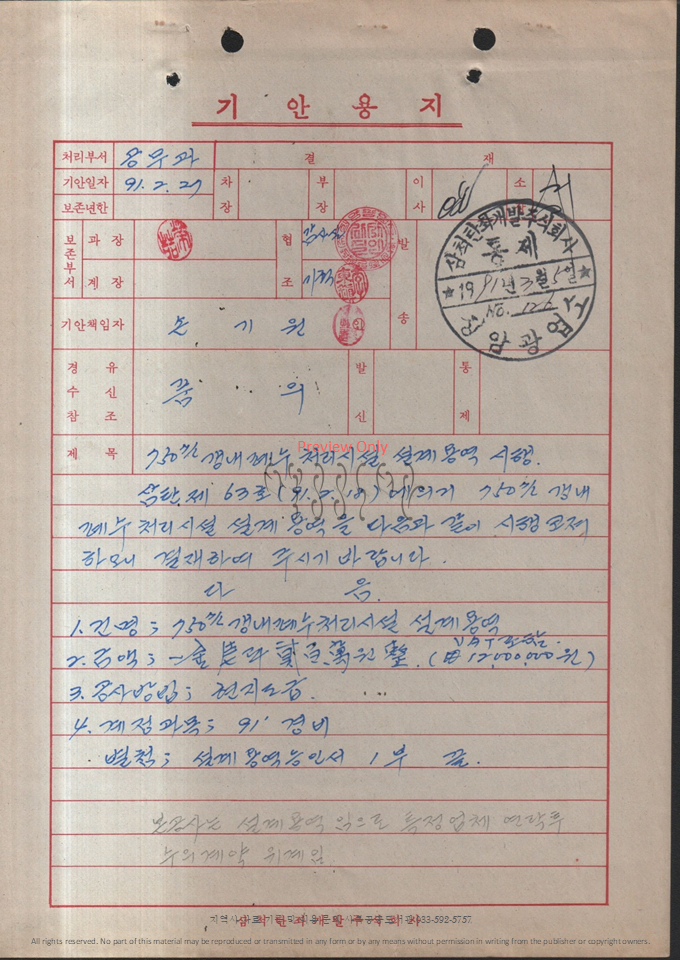 기 안 용 지
처리부서 공무과 결 재
기안일자 91. 2. 27 차장 부장 이사 소
보존년한
보존부서 과 장 협조 발송
계 장
기안책임자 손 기 원
삼척탄좌개발주식회사
통 제
1991년 3월 5일
No. 126
암 광 업 소
경 유
수 신 품 의 발신 통제
참 조
제 목 750㎥/h 갱내폐수 처리시설 설계용역 시행.
Preview Only
삼탄 제 63호 (91. 2. 8)에 의거 750㎥/h 갱내
폐수 처리시설 설계용역을 다음과 같이 시행코져
하오니 결재하여 주시기 바랍니다.
다 음.
1. 건명; 750㎥/h 갱내폐수처리시설 설계용역
VAT 포함.
2. 금액; 一金 萬원整. (₩ 12,000,000원)
3. 공사방법; 현지도급.
4. 계정과목; 91' 경비
별첨; 설계용역승인서 1부 끝.
본공사는 설계용역 임으로 특정업체 연락후
수의계약 위계임.
삼척탄좌개발주식회사
033-592-5757
All rights reserved. No part of this material may be reproduced or transmitted in any form or by any means without permission in writing from the publisher or copyright owners.